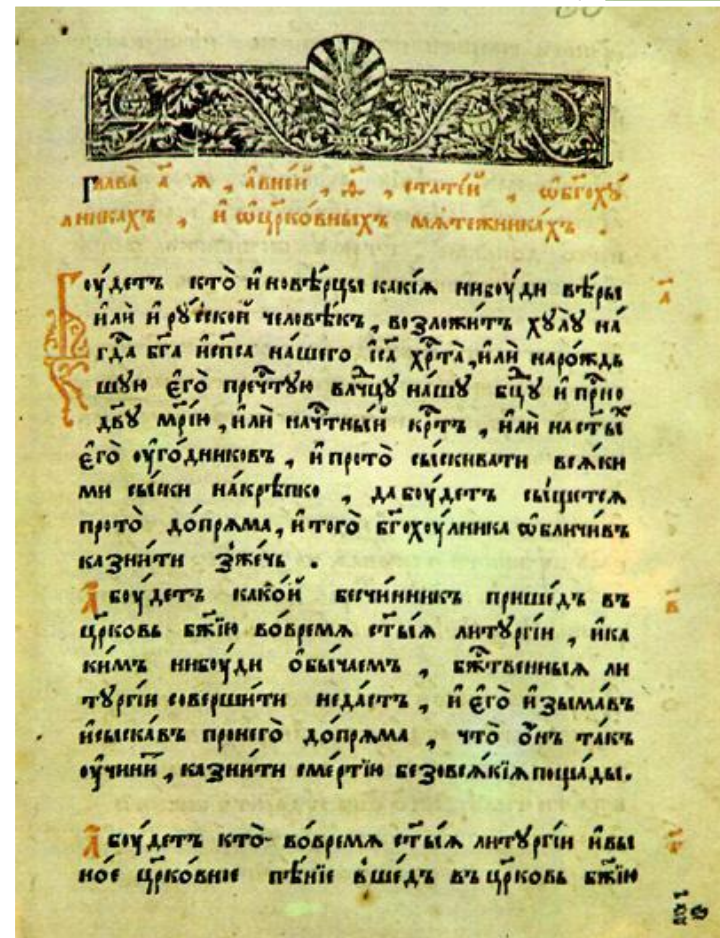 Глава̀ а҃ я , а҆ в не́й , ѳ҃ , стате́й , ѡ҆ бг҃оху́
лникахъ , и҆ ѡ҆ цр҃ко́вныхъ мѧте́жника́хъ .
Боу́детъ кто̀ и҆нове́рцы какі́ѧ нибоу́ди вѣ́ры а҃
и҆лѝ и҆ рꙋ́сской человѣ́къ , возложи́тъ хꙋлꙋ̀ на́
гд҇а бг҃а и҆ сп҃са на́шего і҆с҃а хр҇та̀ , и҆лѝ наро́ждь
шꙋю є҆го̀ пречⷭ҇тꙋю влⷣчцꙋ на́шꙋ бц҃ꙋ и҆ прⷭ҇но
дв҃ꙋ мр҃і́ю , и҆лѝ на чⷭ҇тны́й крⷭ҇тъ , и҆лѝ на ст҃ы́хъ
є҆го̀ оу҆го́дниковъ , и҆ про то̀ сы́скивати всѧ́ки
ми сы́ски на́крѣпко , да боу́детъ сы́щетсѧ
про то̀ до́прѧма , и҆ того̀ бг҃охоу́лника ѡ҆бличи́въ
казни́ти зже́чь .
А҆ боу́детъ како́й бесчи́нникъ прише́дъ въ в҃
цр҃ковь бж҃ію во́ времѧ ст҃ы́ѧ литꙋргі́и , и҆ ка
ки́мъ нибоу́ди ѻ҆бы́чаемъ , бж҇твенныѧ ли
тꙋргі́и соверши́ти неда́стъ , и҆ є҆го̀ и҆зыма́въ
и҆ сыска́въ про него̀ до́прѧма , что̀ ѻ҆́нъ та́къ
оу҆чини́т , казни́ти сме́ртїю безо всѧ́кїѧ поща́ды .
А҆ боу́детъ кто̀ во́ времѧ ст҃ы́ѧ литꙋргі́и и҆ в ы г҃
но́е цр҃ко́вное пѣ́нїе вше́дъ въ цр҃ковь бж҃ію